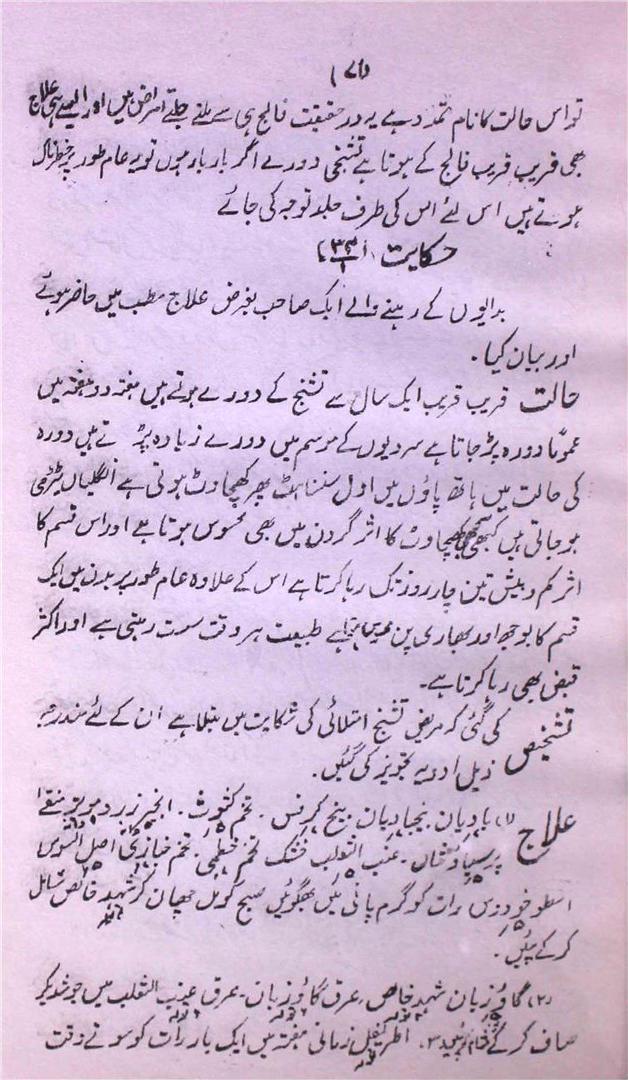 (۷۱)
تو اس حالت کا نام تمدد ہے یہ در حقیقت فالج ہی سے ملتے جلتے امراض ہیں اور ایسے ہی علاج
بھی قریب قریب فالج کے ہوتا ہے تشنجی دورے اگر بار بار ہوں تو یہ عام طور پر خطرناک
ہوتے ہیں اس لئے اس کی طرف جلد توجہ کی جائے
حکایت
بدایوں کے رہنے والے ایک صاحب بغرض علاج مطب میں حاضر ہوئے
اور بیان کیا۔
حالت قریب قریب ایک سال سے تشنج کے دورے ہوتے ہیں ہفتہ دو ہفتہ میں
عموماً دورہ پڑ جاتا ہے سردیوں کے موسم میں دورے زیادہ پڑتے ہیں دورہ
کی حالت میں ہاتھ پاؤں میں اول سنسناہٹ پھر کھچاوٹ ہوتی ہے انگلیاں ٹیڑھی
ہو جاتی ہیں کبھی کبھی کھچاوٹ کا اثر گردن میں بھی محسوس ہوتا ہے اور اس قسم کا
اثر کم و بیش تین چار روز تک رہا کرتا ہے اس کے علاوہ عام طور پر بدن میں ایک
قسم کا بوجھ اور بھاری پن ہے طبیعت ہر وقت سست رہتی ہے اور اکثر
قبض بھی رہا کرتا ہے۔
تشخیص کی گئی کہ مریض تشنج امتلائی کی شکایت میں مبتلا ہے ان کے لئے مندرجہ
ذیل ادویہ تجویز کی گئیں۔
علاج (۱) بادیان۔ بیخ بادیان۔ بیخ کرفس۔ تخم کثوث۔ انجیر زرد مویز منقے
پرسیاوشاں۔ عنب الثعلب خشک تخم خطمی۔ تخم خبازی اصل السوس
اسطوخودوس رات کو گرم پانی میں بھگوئیں صبح کو مل چھان کر شہد خالص شامل
کر کے پئیں۔
(۲) گاؤزبان شہد خالص، عرق گاؤزبان۔ عرق عنب الثعلب میں جوشدیکر
صاف کر کے اطریفل زمانی ہفتہ میں ایک بار رات کو سوتے وقت